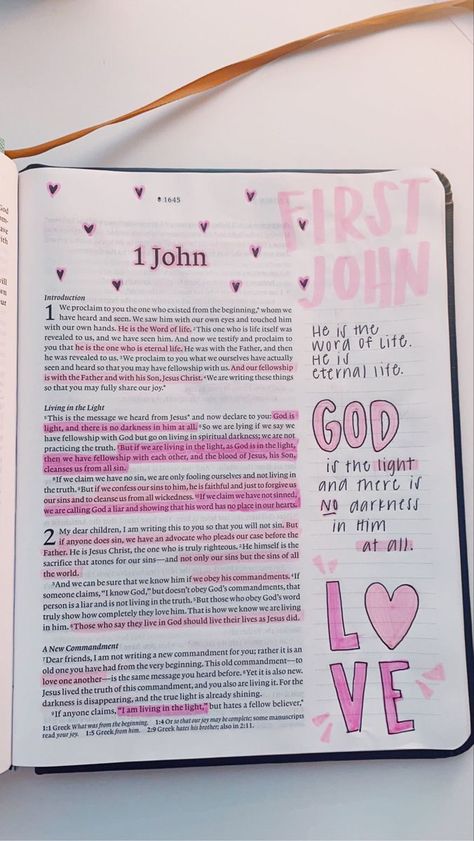 1645
1 John
Introduction
1 We proclaim to you the one who existed from the beginning,* whom we
have heard and seen. We saw him with our own eyes and touched him
with our own hands. He is the Word of life. ²This one who is life itself was
revealed to us, and we have seen him. And now we testify and proclaim to
you that he is the one who is eternal life. He was with the Father, and then
he was revealed to us. ³We proclaim to you what we ourselves have actually
seen and heard so that you may have fellowship with us. And our fellowship
is with the Father and with his Son, Jesus Christ. ⁴We are writing these things
so that you may fully share our joy.*
Living in the Light
⁵This is the message we heard from Jesus* and now declare to you: God is
light, and there is no darkness in him at all. ⁶So we are lying if we say we
have fellowship with God but go on living in spiritual darkness; we are not
practicing the truth. ⁷But if we are living in the light, as God is in the light,
then we have fellowship with each other, and the blood of Jesus, his Son,
cleanses us from all sin.
⁸If we claim we have no sin, we are only fooling ourselves and not living in
the truth. ⁹But if we confess our sins to him, he is faithful and just to forgive us
our sins and to cleanse us from all wickedness. ¹⁰If we claim we have not sinned,
we are calling God a liar and showing that his word has no place in our hearts.
2 My dear children, I am writing this to you so that you will not sin. But
if anyone does sin, we have an advocate who pleads our case before the
Father. He is Jesus Christ, the one who is truly righteous. ²He himself is the
sacrifice that atones for our sins—and not only our sins but the sins of all
the world.
³And we can be sure that we know him if we obey his commandments. ⁴If
someone claims, “I know God,” but doesn’t obey God’s commandments, that
person is a liar and is not living in the truth. ⁵But those who obey God’s word
truly show how completely they love him. That is how we know we are living
in him. ⁶Those who say they live in God should live their lives as Jesus did.
A New Commandment
⁷Dear friends, I am not writing a new commandment for you; rather it is an
old one you have had from the very beginning. This old commandment—to
love one another—is the same message you heard before. ⁸Yet it is also new.
Jesus lived the truth of this commandment, and you also are living it. For the
darkness is disappearing, and the true light is already shining.
⁹If anyone claims, “I am living in the light,” but hates a fellow believer,*
1:1 Greek What was from the beginning. 1:4 Or so that our joy may be complete; some manuscripts
read your joy. 1:5 Greek from him. 2:9 Greek hates his brother; also in 2:11.
FIRST
JOHN
He is the
word of life.
He is
eternal life.
GOD
is the light
and there is
NO darkness
in Him
at all.
LOVE